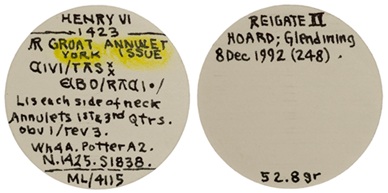 HENRY VI
1423
AR GROAT ANNULET
YORK ISSUE
CIVI/TAS
EBO/RACI•/
Lis each side of neck
Annulets 1st & 3rd Qtrs.
obv 1/rev 3.
Wh4A. Potter A2.
N.1425. S1838.
ML/4115
REIGATE II
HOARD; Glendining
8 Dec 1992 (248).
52.8gr